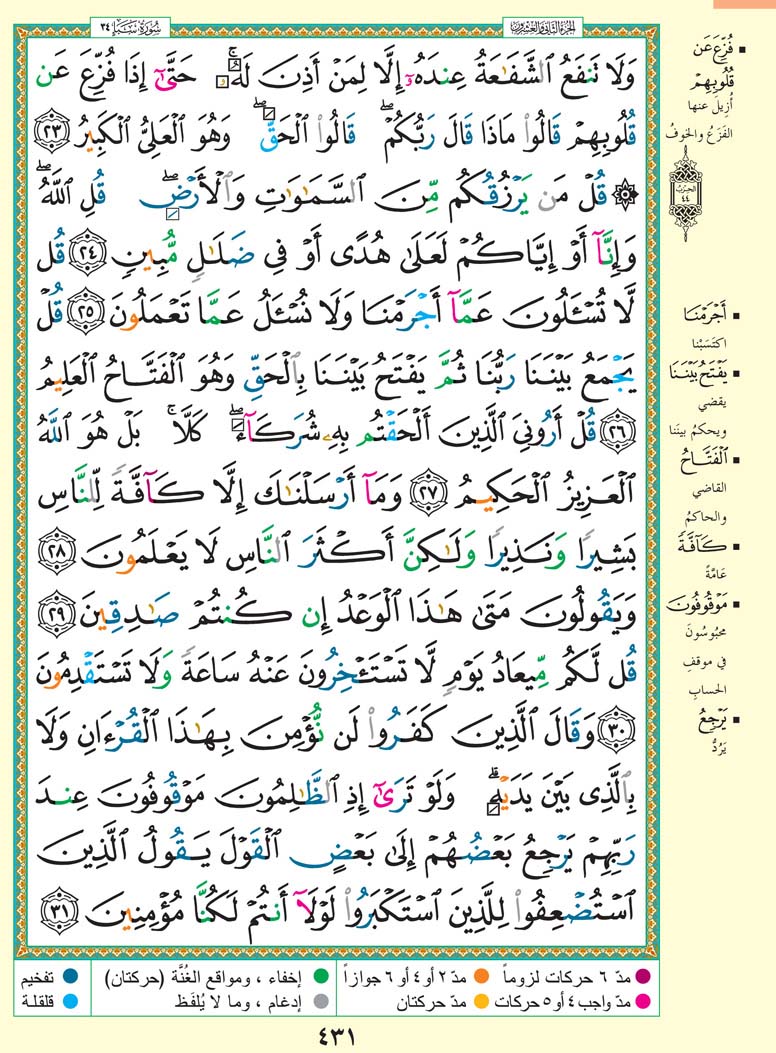 الجزء الثاني والعشرون
سُورَةُ سَبَإٍ ٣٤
وَلَا تَنفَعُ ٱلشَّفَٰعَةُ عِندَهُۥٓ إِلَّا لِمَنْ أَذِنَ لَهُۥ ۚ حَتَّىٰٓ إِذَا فُزِّعَ عَن
قُلُوبِهِمْ قَالُوا۟ مَاذَا قَالَ رَبُّكُمْ ۖ قَالُوا۟ ٱلْحَقَّ ۖ وَهُوَ ٱلْعَلِىُّ ٱلْكَبِيرُ ٢٣
۞ قُلْ مَن يَرْزُقُكُم مِّنَ ٱلسَّمَٰوَٰتِ وَٱلْأَرْضِ ۖ قُلِ ٱللَّهُ ۖ
وَإِنَّآ أَوْ إِيَّاكُمْ لَعَلَىٰ هُدًى أَوْ فِى ضَلَٰلٍ مُّبِينٍ ٢٤ قُل
لَّا تُسْـَٔلُونَ عَمَّآ أَجْرَمْنَا وَلَا نُسْـَٔلُ عَمَّا تَعْمَلُونَ ٢٥ قُلْ
يَجْمَعُ بَيْنَنَا رَبُّنَا ثُمَّ يَفْتَحُ بَيْنَنَا بِٱلْحَقِّ وَهُوَ ٱلْفَتَّاحُ ٱلْعَلِيمُ
٢٦ قُلْ أَرُونِىَ ٱلَّذِينَ أَلْحَقْتُم بِهِۦ شُرَكَآءَ ۖ كَلَّا ۚ بَلْ هُوَ ٱللَّهُ
ٱلْعَزِيزُ ٱلْحَكِيمُ ٢٧ وَمَآ أَرْسَلْنَٰكَ إِلَّا كَآفَّةً لِّلنَّاسِ
بَشِيرًا وَنَذِيرًا وَلَٰكِنَّ أَكْثَرَ ٱلنَّاسِ لَا يَعْلَمُونَ ٢٨
وَيَقُولُونَ مَتَىٰ هَٰذَا ٱلْوَعْدُ إِن كُنتُمْ صَٰدِقِينَ ٢٩
قُل لَّكُم مِّيعَادُ يَوْمٍ لَّا تَسْتَـْٔخِرُونَ عَنْهُ سَاعَةً وَلَا تَسْتَقْدِمُونَ
٣٠ وَقَالَ ٱلَّذِينَ كَفَرُوا۟ لَن نُّؤْمِنَ بِهَٰذَا ٱلْقُرْءَانِ وَلَا
بِٱلَّذِى بَيْنَ يَدَيْهِ ۗ وَلَوْ تَرَىٰٓ إِذِ ٱلظَّٰلِمُونَ مَوْقُوفُونَ عِندَ
رَبِّهِمْ يَرْجِعُ بَعْضُهُمْ إِلَىٰ بَعْضٍ ٱلْقَوْلَ يَقُولُ ٱلَّذِينَ
ٱسْتُضْعِفُوا۟ لِلَّذِينَ ٱسْتَكْبَرُوا۟ لَوْلَآ أَنتُمْ لَكُنَّا مُؤْمِنِينَ ٣١
▪ فُزِّعَ عَن
قُلُوبِهِمْ
أُزِيلَ عنها
الفَزَعُ والخوفُ
الحزب
٤٤
▪ أَجْرَمْنَا
اكتَسَبْنا
▪ يَفْتَحُ بَيْنَنَا
يقضي
ويحكمُ بينَنا
▪ ٱلْفَتَّاحُ
القاضي
والحاكمُ
▪ كَآفَّةً
عامّةً
▪ مَوْقُوفُونَ
محبُوسُونَ
في موقفِ
الحسابِ
▪ يَرْجِعُ
يَرُدُّ
مدّ ٦ حركات لزوماً ● مدّ ٢ أو ٤ أو ٦ جوازاً ● إخفاء ، ومواقع الغُنَّة (حركتان) ● تفخيم
مدّ واجب ٤ أو ٥ حركات ● مدّ حركتان ● إدغام ، وما لا يُلفَظ ● قلقلة
٤٣١